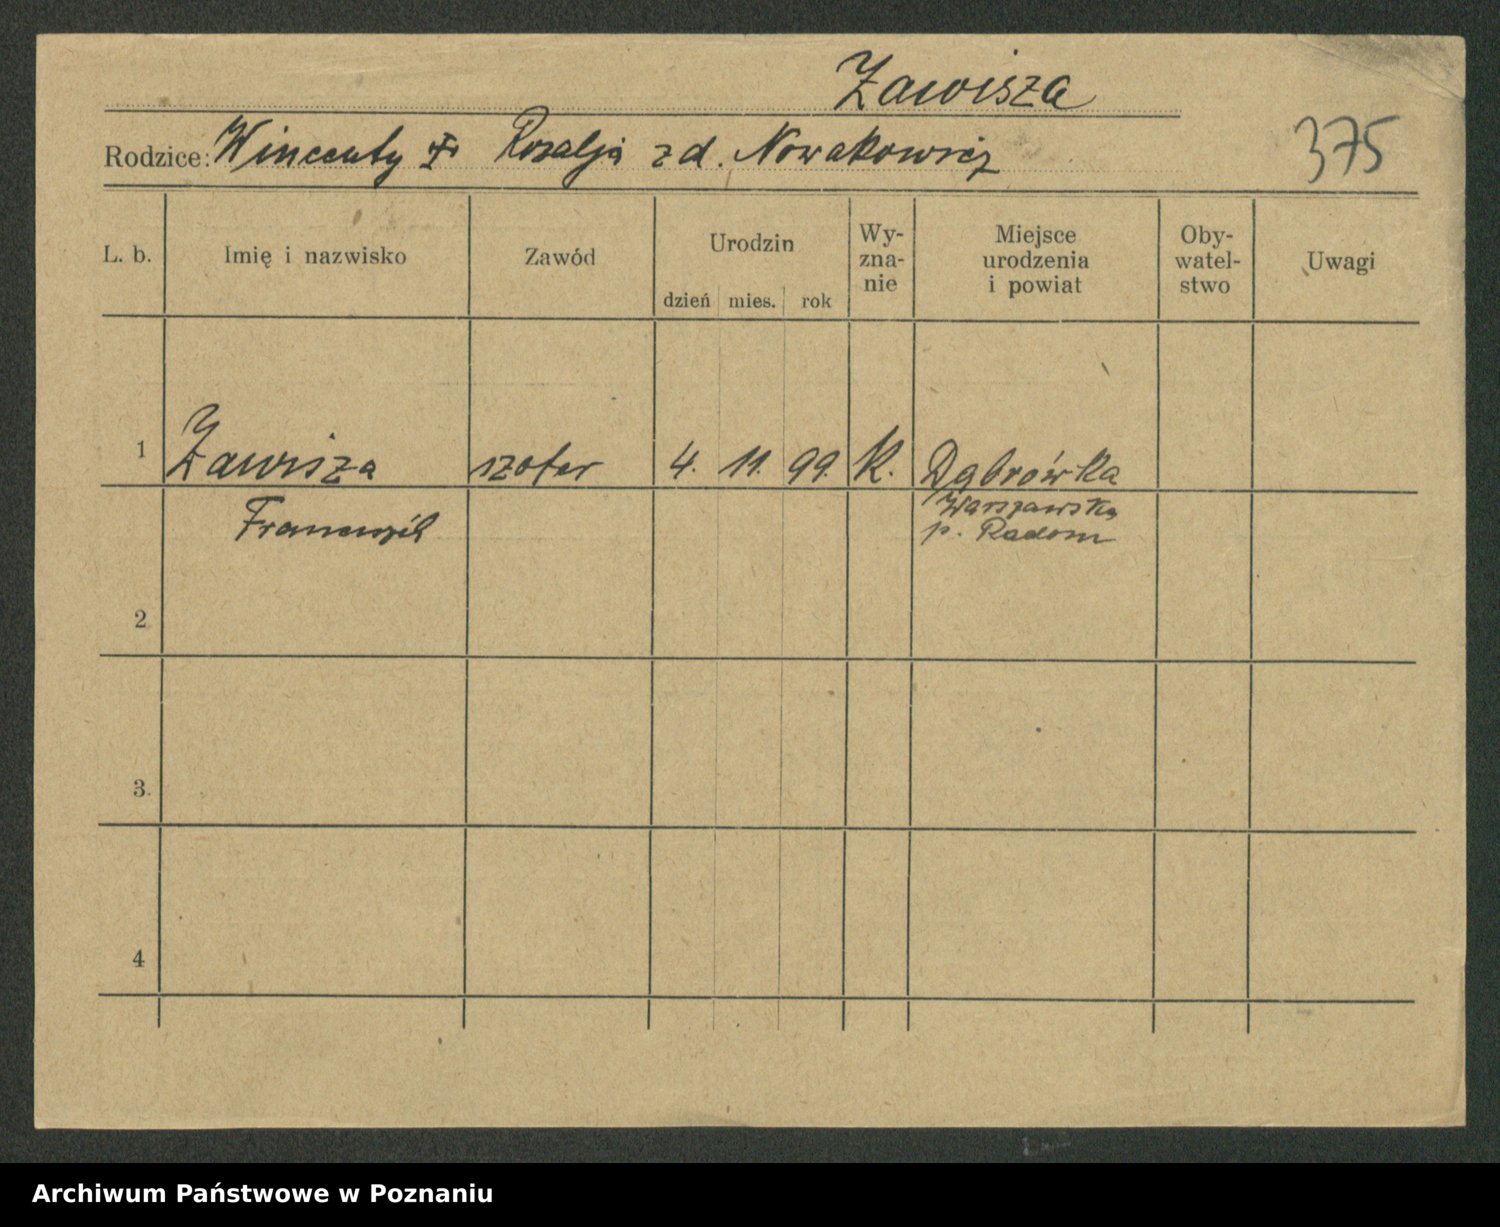 Zawisza
Rodzice: Wincenty Rozalja z d. Nowakowicz
375
L. b. Imię i nazwisko Zawód Urodzin Wy-zna-nie Miejsce urodzenia i powiat Oby-watel-stwo Uwagi
dzień mies. rok
1 Zawisza szofer 4. 11. 99. K. Dąbrówka
Franciszek Warszawska
p. Radom
2
3.
4
Archiwum Państwowe w Poznaniu